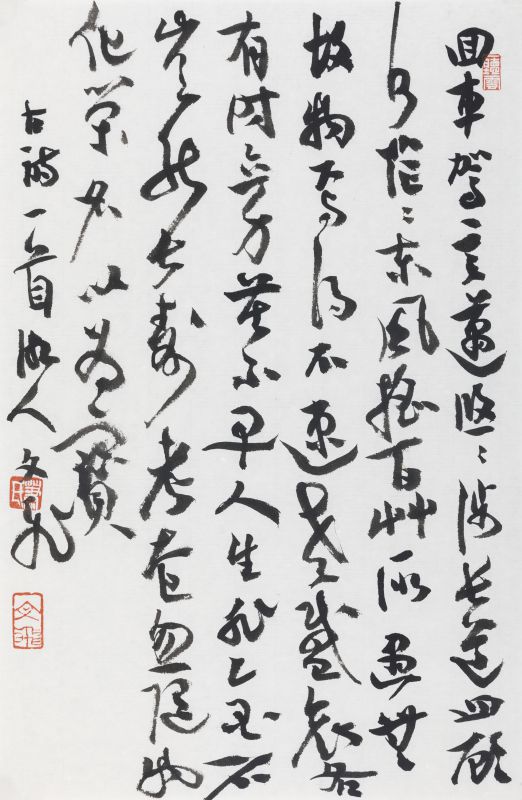 聽雲
回車駕言邁悠〻涉長道四顧
何茫〻東風搖百草所遇無
故物焉得不速老盛衰各
有時立身苦不早人生非金石
豈能長壽考奄忽隨物
化榮名以為寶
古詩一首湖人文飛
文飛